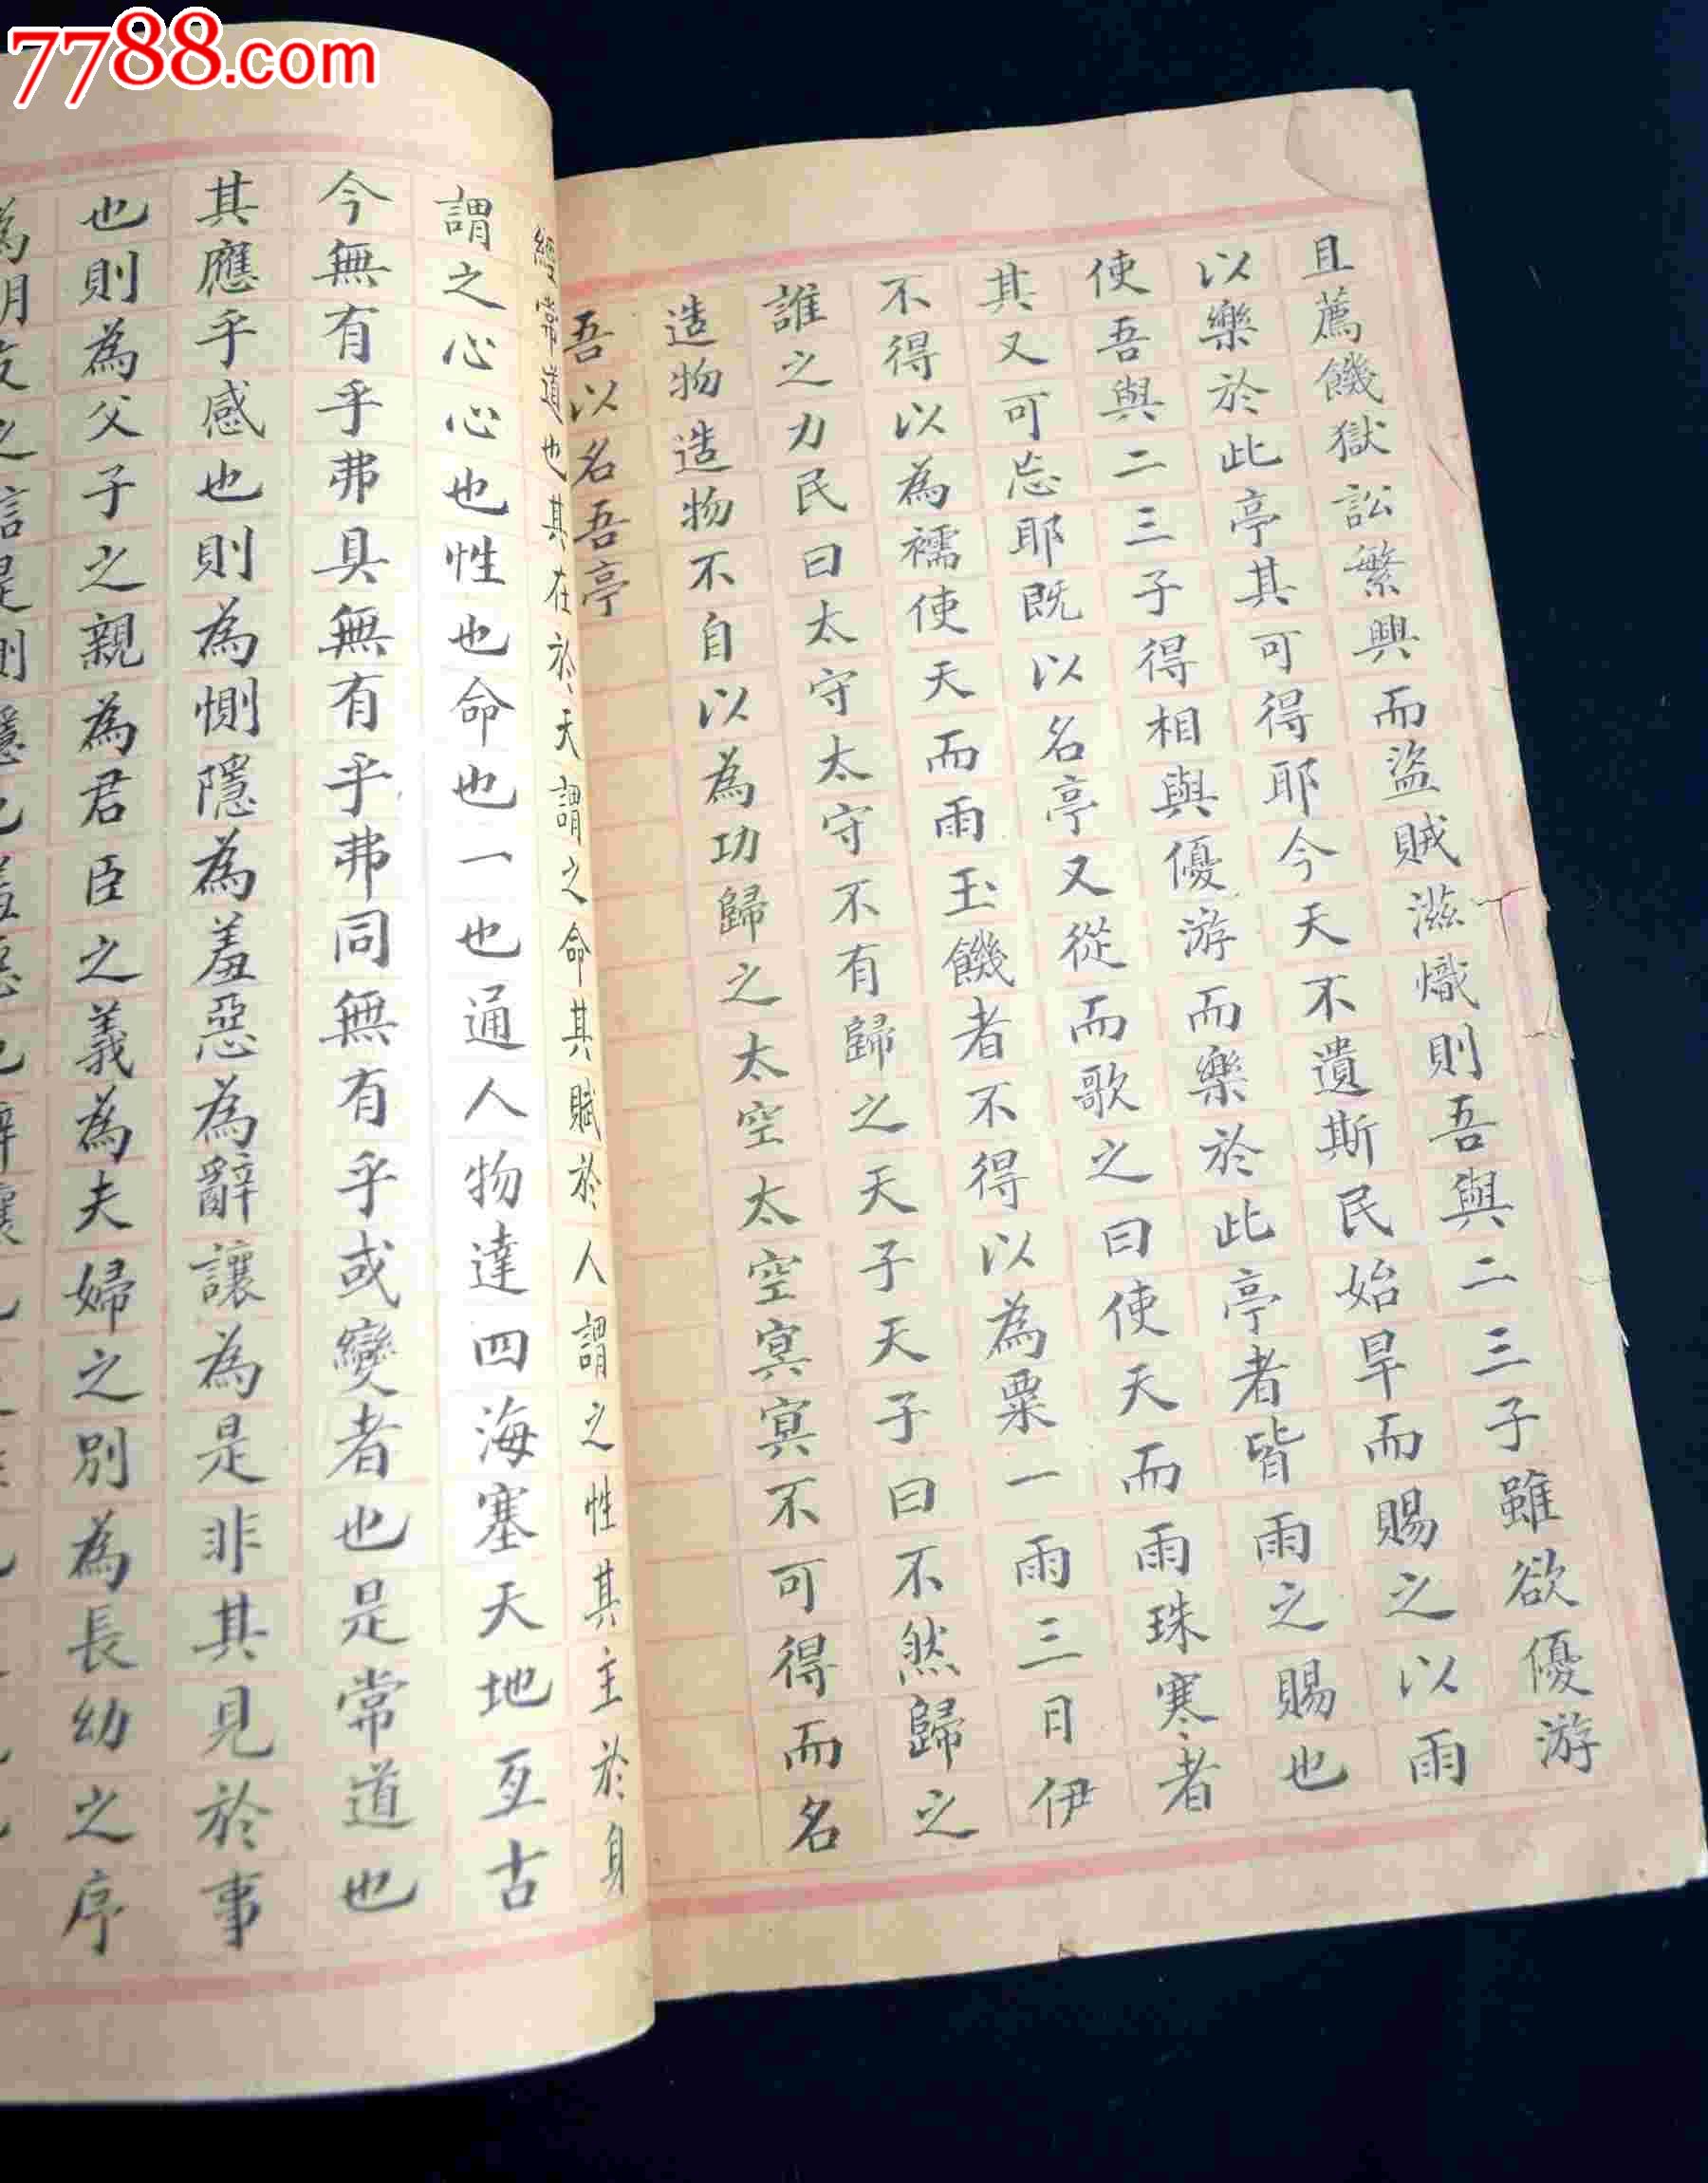 7788.com
且薦饑獄訟繁興而盜賊滋熾則吾與二三子雖欲優游
以樂於此亭其可得耶今天不遺斯民始旱而賜之以雨
使吾與二三子得相與優游而樂於此亭者皆雨之賜也
其又可忘耶既以名亭又從而歌之曰使天而雨珠寒者
不得以為襦使天而雨玉饑者不得以為粟一雨三日伊
誰之力民曰太守太守不有歸之天子天子曰不然歸之
造物造物不自以為功歸之太空太空冥冥不可得而名
吾以名吾亭
經常道也其在於天謂之命其賦於人謂之性其主於身
謂之心心也性也命也一也通人物達四海塞天地亙古
今無有乎弗具無有乎弗同無有乎或變者也是常道也
其應乎感也則為惻隱為羞惡為辭讓為是非其見於事
也則為父子之親為君臣之義為夫婦之別為長幼之序
為朋友之信是惻隱也羞惡也辭讓也